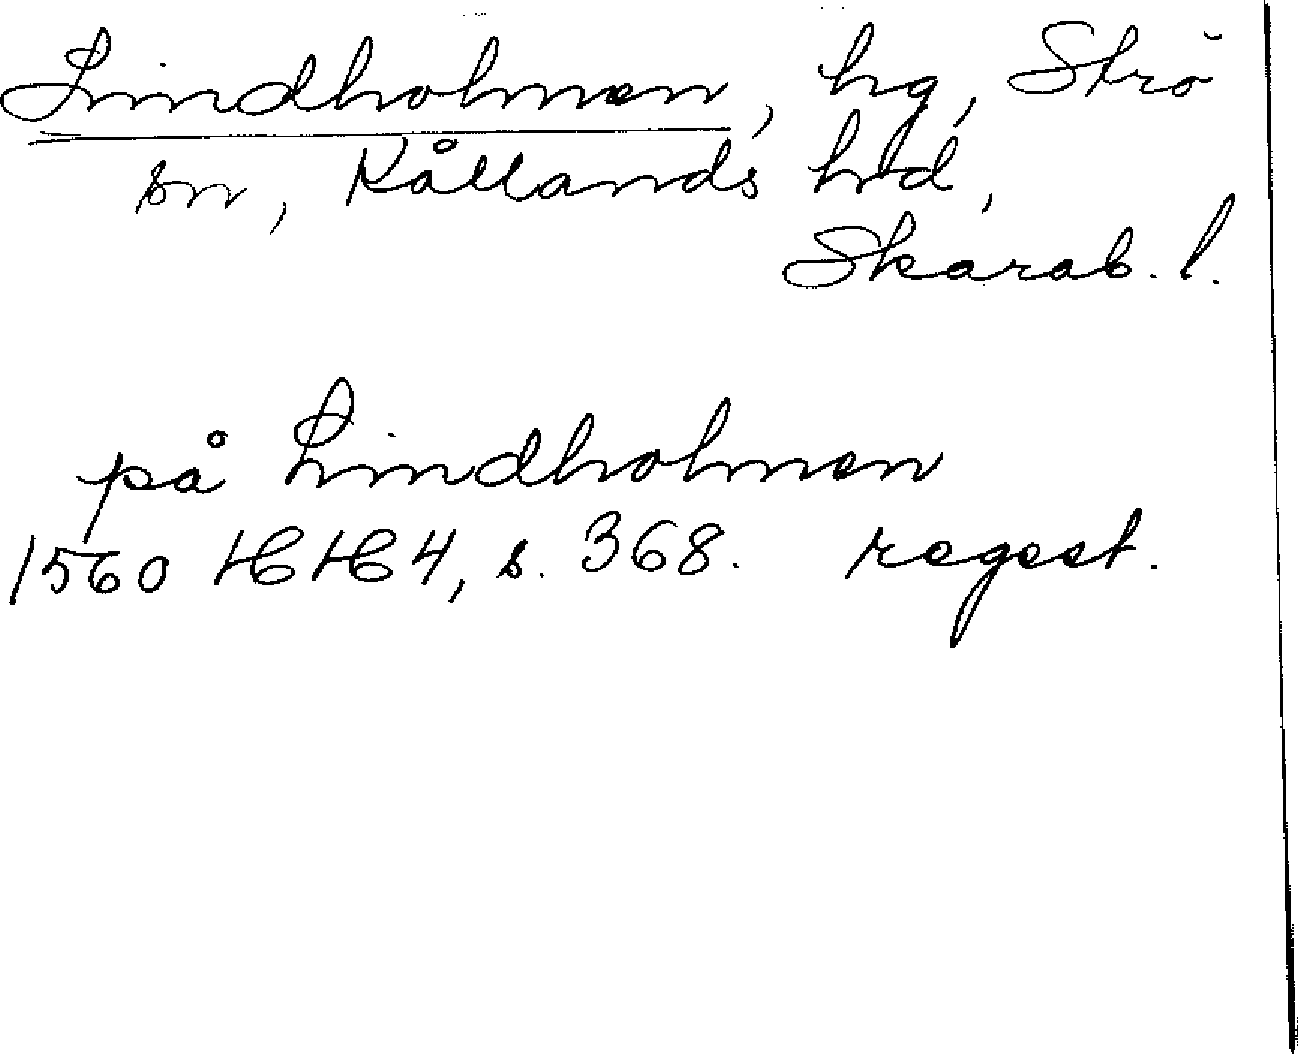 Lindholmen, hg, Strö
sn, Kållands hd,
Skarab. l.
på Lindholmen
1560 HH 4, s. 368. regest.